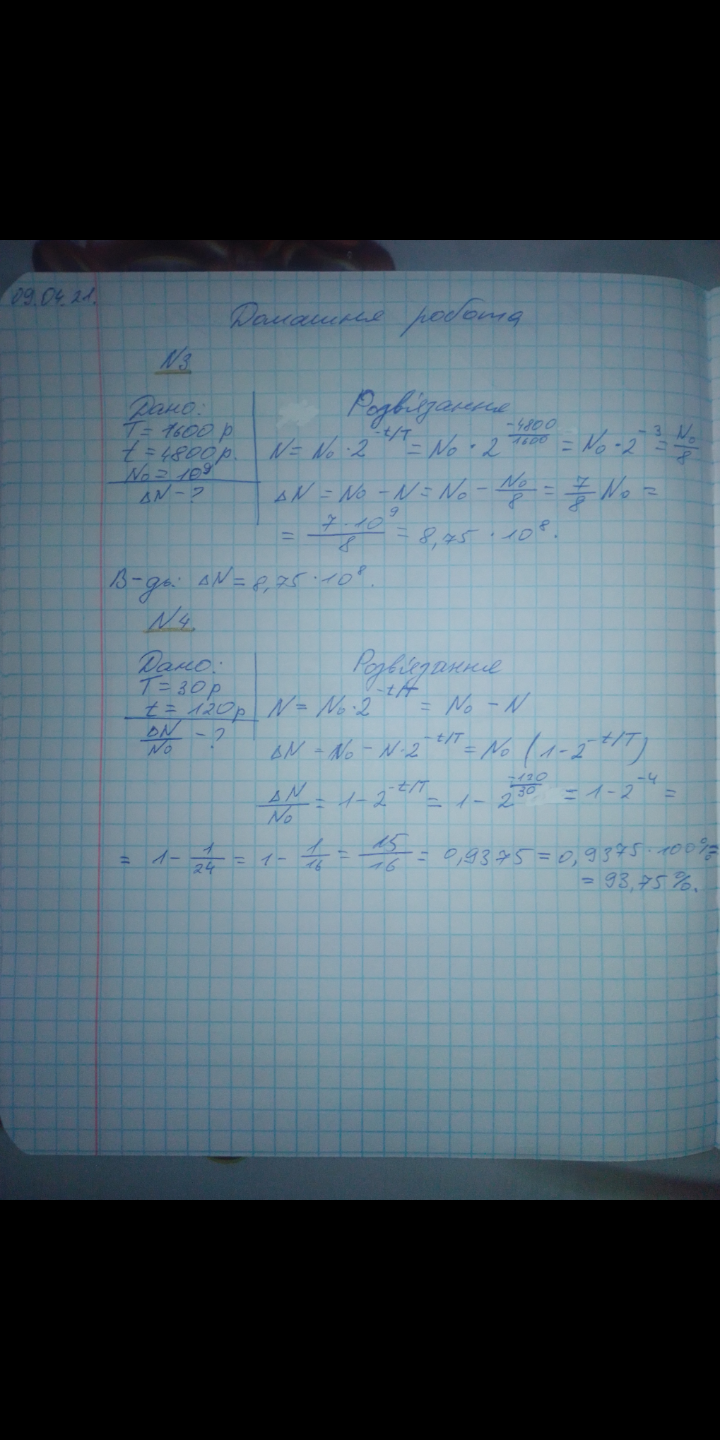 09.04.21.
Домашня робота
N3
Дано:
T = 1600 р
t = 4800 р.
N₀ = 10⁹
ΔN - ?
Розв'язання
N = N₀ · 2^(-t/T) = N₀ · 2^(-4800/1600) = N₀ · 2^(-3) = N₀/8
ΔN = N₀ - N = N₀ - N₀/8 = 7/8 N₀ =
= 7 · 10⁹/8 = 8,75 · 10⁸.
В-дь: ΔN = 8,75 · 10⁸.
N4
Дано:
T = 30 р
t = 120 р
ΔN/N₀ - ?
Розв'язання
N = N₀ · 2^(-t/T) = N₀ - N
ΔN = N₀ - N · 2^(-t/T) = N₀ (1 - 2^(-t/T))
ΔN/N₀ = 1 - 2^(-t/T) = 1 - 2^(-120/30) = 1 - 2^(-4) =
= 1 - 1/24 = 1 - 1/16 = 15/16 = 0,9375 = 0,9375 · 100% =
= 93,75%.